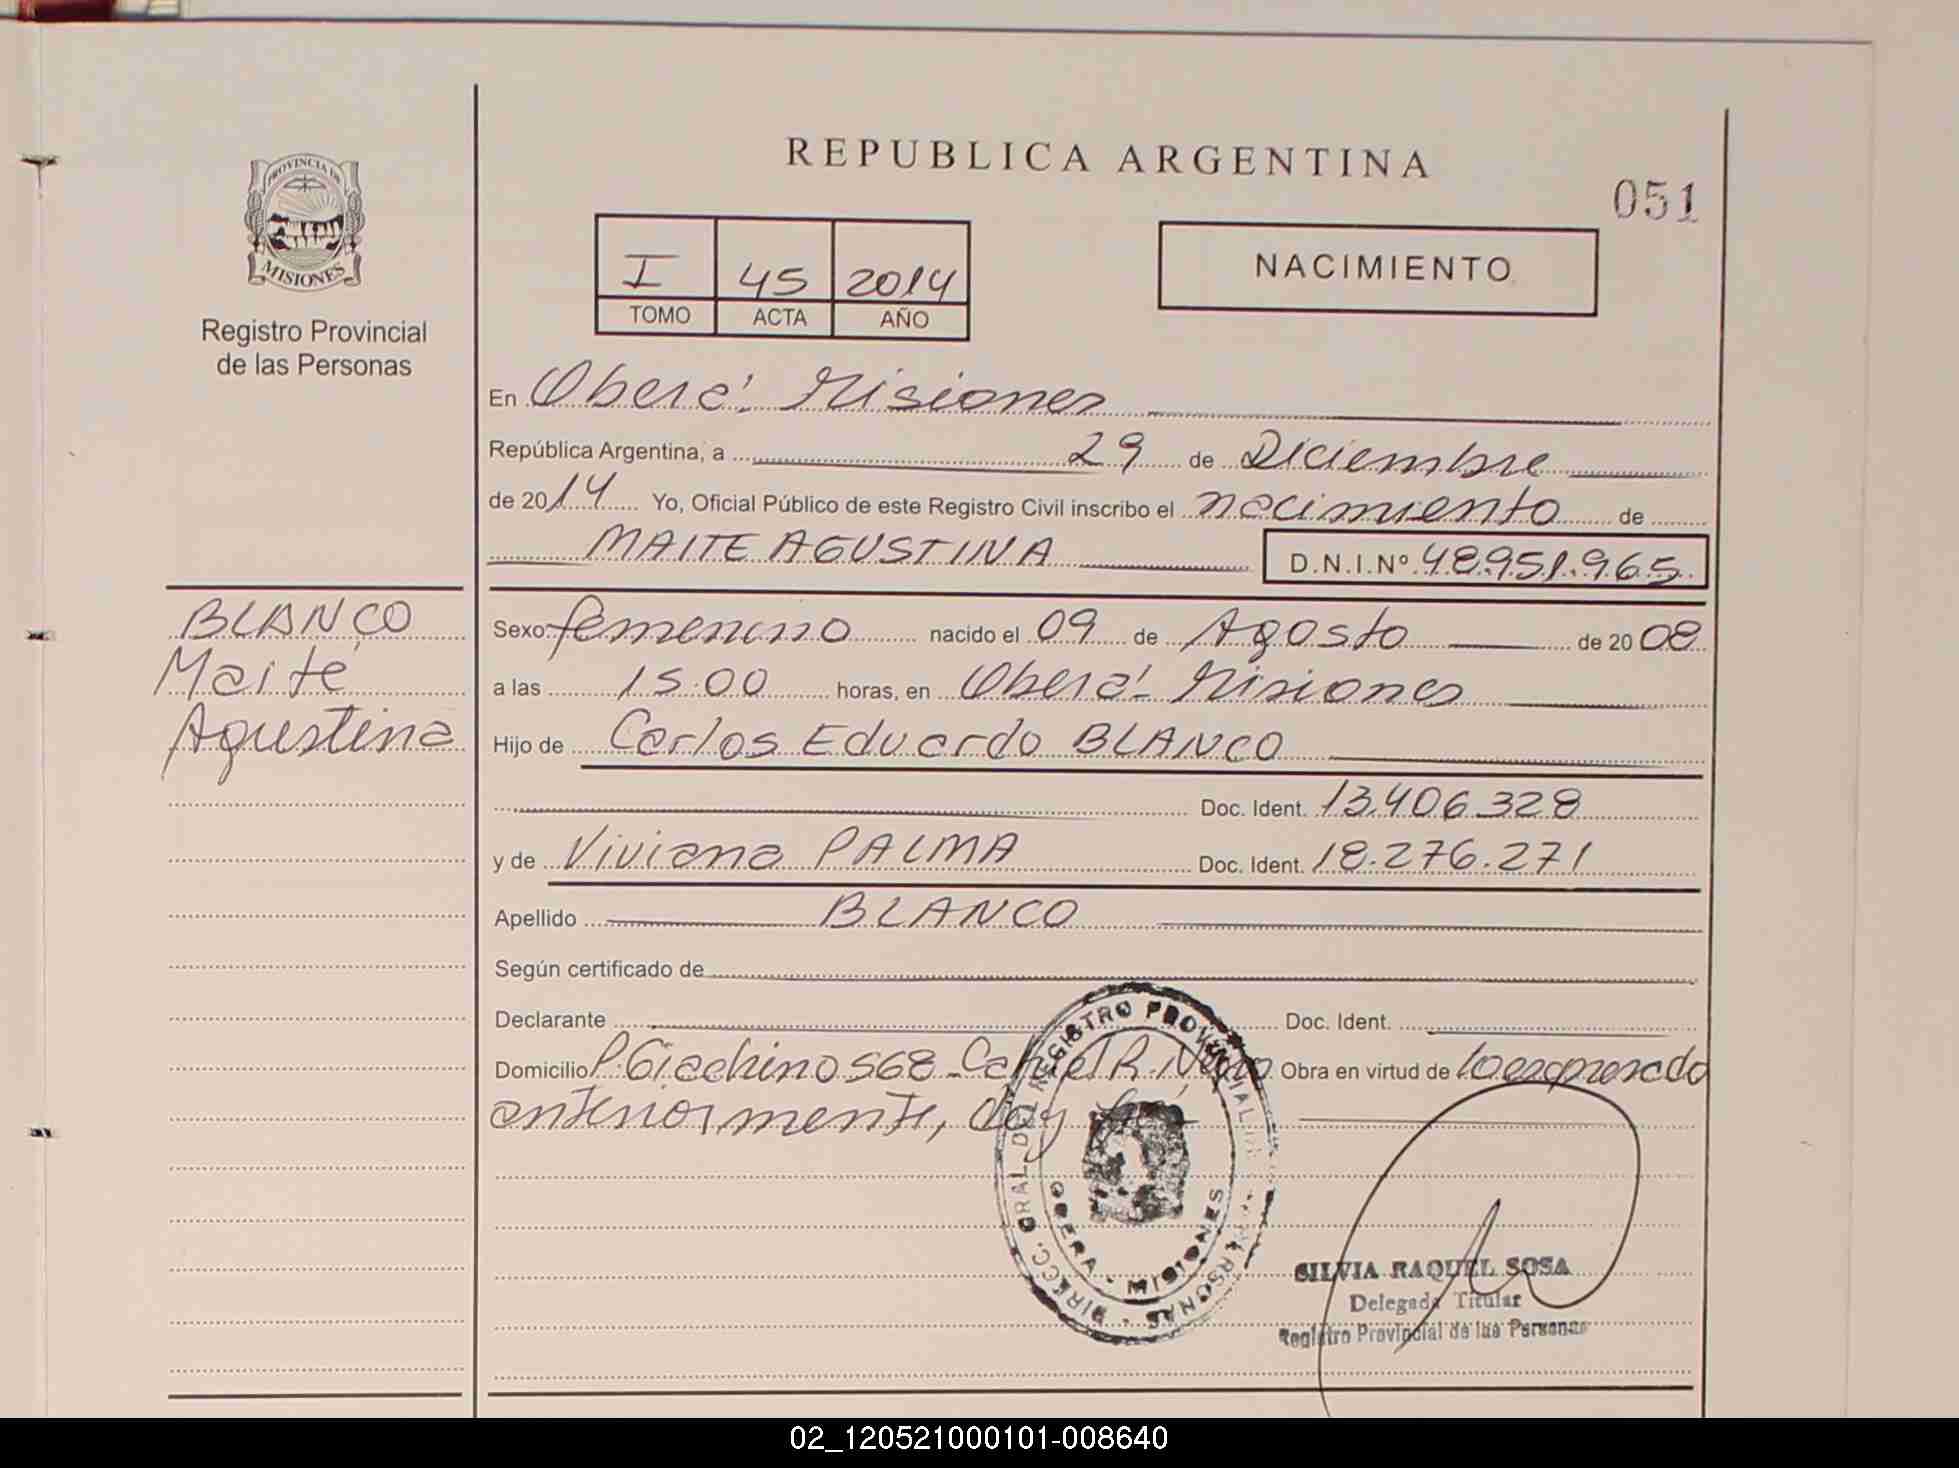 PROVINCIA DE
MISIONES
Registro Provincial
de las Personas
BLANCO
Maité
Agustina
REPUBLICA ARGENTINA
051
I 45 2014
TOMO ACTA AÑO
NACIMIENTO
En Oberá. Misiones
República Argentina, a 29 de Diciembre
de 2014 Yo, Oficial Público de este Registro Civil inscribo el nacimiento de
MAITE AGUSTINA D.N.I.Nº 48.951.965
Sexo: femenino nacido el 09 de Agosto de 2008
a las 15.00 horas, en Oberá- Misiones
Hijo de Carlos Eduardo BLANCO
Doc. Ident. 13.406.328
y de Viviana PALMA Doc. Ident. 18.276.271
Apellido BLANCO
Según certificado de
Declarante Doc. Ident.
Domicilio P. Giachino 568 - Obra en virtud de lo expresado
anteriormente, doy fé
DIRECC. GRAL. DEL REGISTRO PROVINCIAL DE LAS PERSONAS
OBERA - MISIONES
SILVIA RAQUEL SOSA
Delegada Titular
Registro Provincial de las Personas
02_120521000101-008640